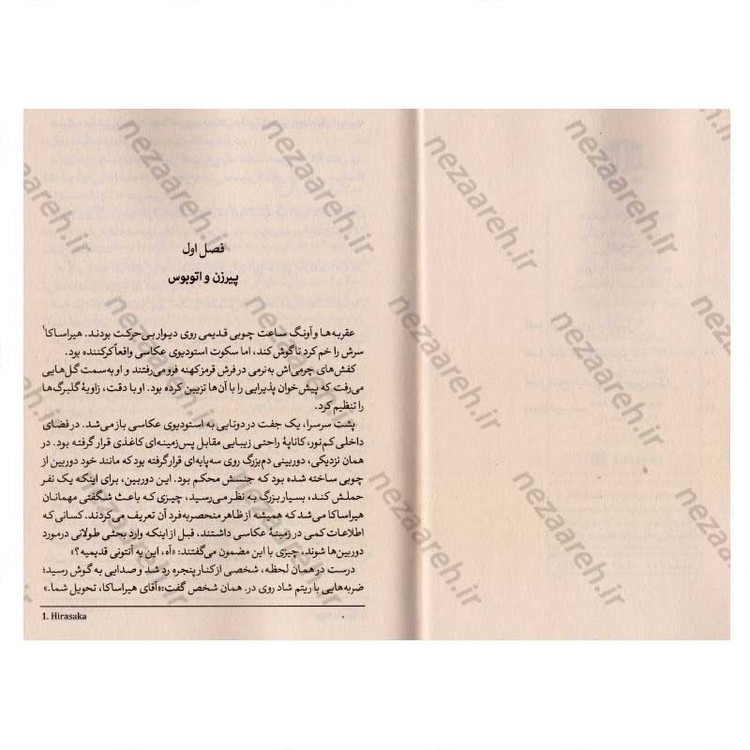 فصل اول
پیرزن و اتوبوس
عقربه‌ها و آونگ ساعت چوبی قدیمی روی دیوار بی‌حرکت بودند. هیراساکا¹
سرش را خم کرد تا گوش کند، اما سکوت استودیوی عکاسی واقعاً کرکننده بود.
کفش‌های چرمی‌اش به‌نرمی در فرش قرمز کهنه فرو می‌رفتند و او به‌سمت گل‌هایی
می‌رفت که پیش‌خوان پذیرایی را با آن‌ها تزیین کرده بود. او با دقت، زاویهٔ گلبرگ‌ها
را تنظیم کرد.
پشت سرسرا، یک جفت در دوتایی به استودیوی عکاسی باز می‌شد. در فضای
داخلی کم‌نور، کاناپهٔ راحتی زیبایی مقابل پس‌زمینه‌ای کاغذی قرار گرفته بود. در
همان نزدیکی، دوربینی دم‌بزرگ روی سه‌پایه‌ای قرار گرفته بود که مانند خود دوربین از
چوبی ساخته شده بود که جنسش محکم بود. این دوربین، برای اینکه یک نفر
حملش کند، بسیار بزرگ به نظر می‌رسید، چیزی که باعث شگفتی مهمانان
هیراساکا می‌شد که همیشه از ظاهر منحصربه‌فرد آن تعریف می‌کردند. کسانی که
اطلاعات کمی در زمینهٔ عکاسی داشتند، قبل از اینکه وارد بحثی طولانی درمورد
دوربین‌ها شوند، چیزی با این مضمون می‌گفتند: «آه، این یه آنتونی قدیمیه؟»
درست در همان لحظه، شخصی از کنار پنجره رد شد و صدایی به گوش رسید؛
ضربه‌هایی با ریتم شاد روی در. همان شخص گفت: «آقای هیراساکا، تحویل شما.»
1. Hirasaka
nezaareh.ir
nezaareh.ir
nezaareh.ir
nezaareh.ir
nezaareh.ir
nezaareh.ir
nezaareh.ir
nezaareh.ir
nezaareh.ir